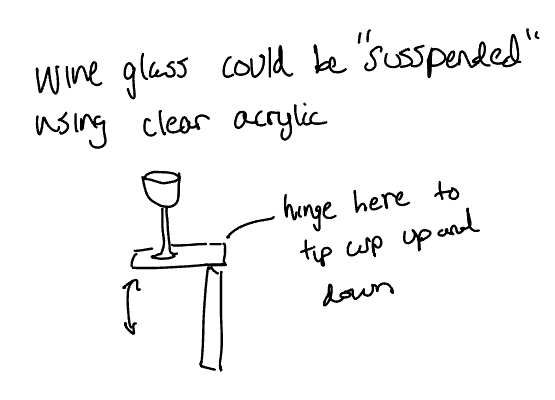 wine glass could be "susspended"
using clear acrylic
hinge here to
tip cup up and
down